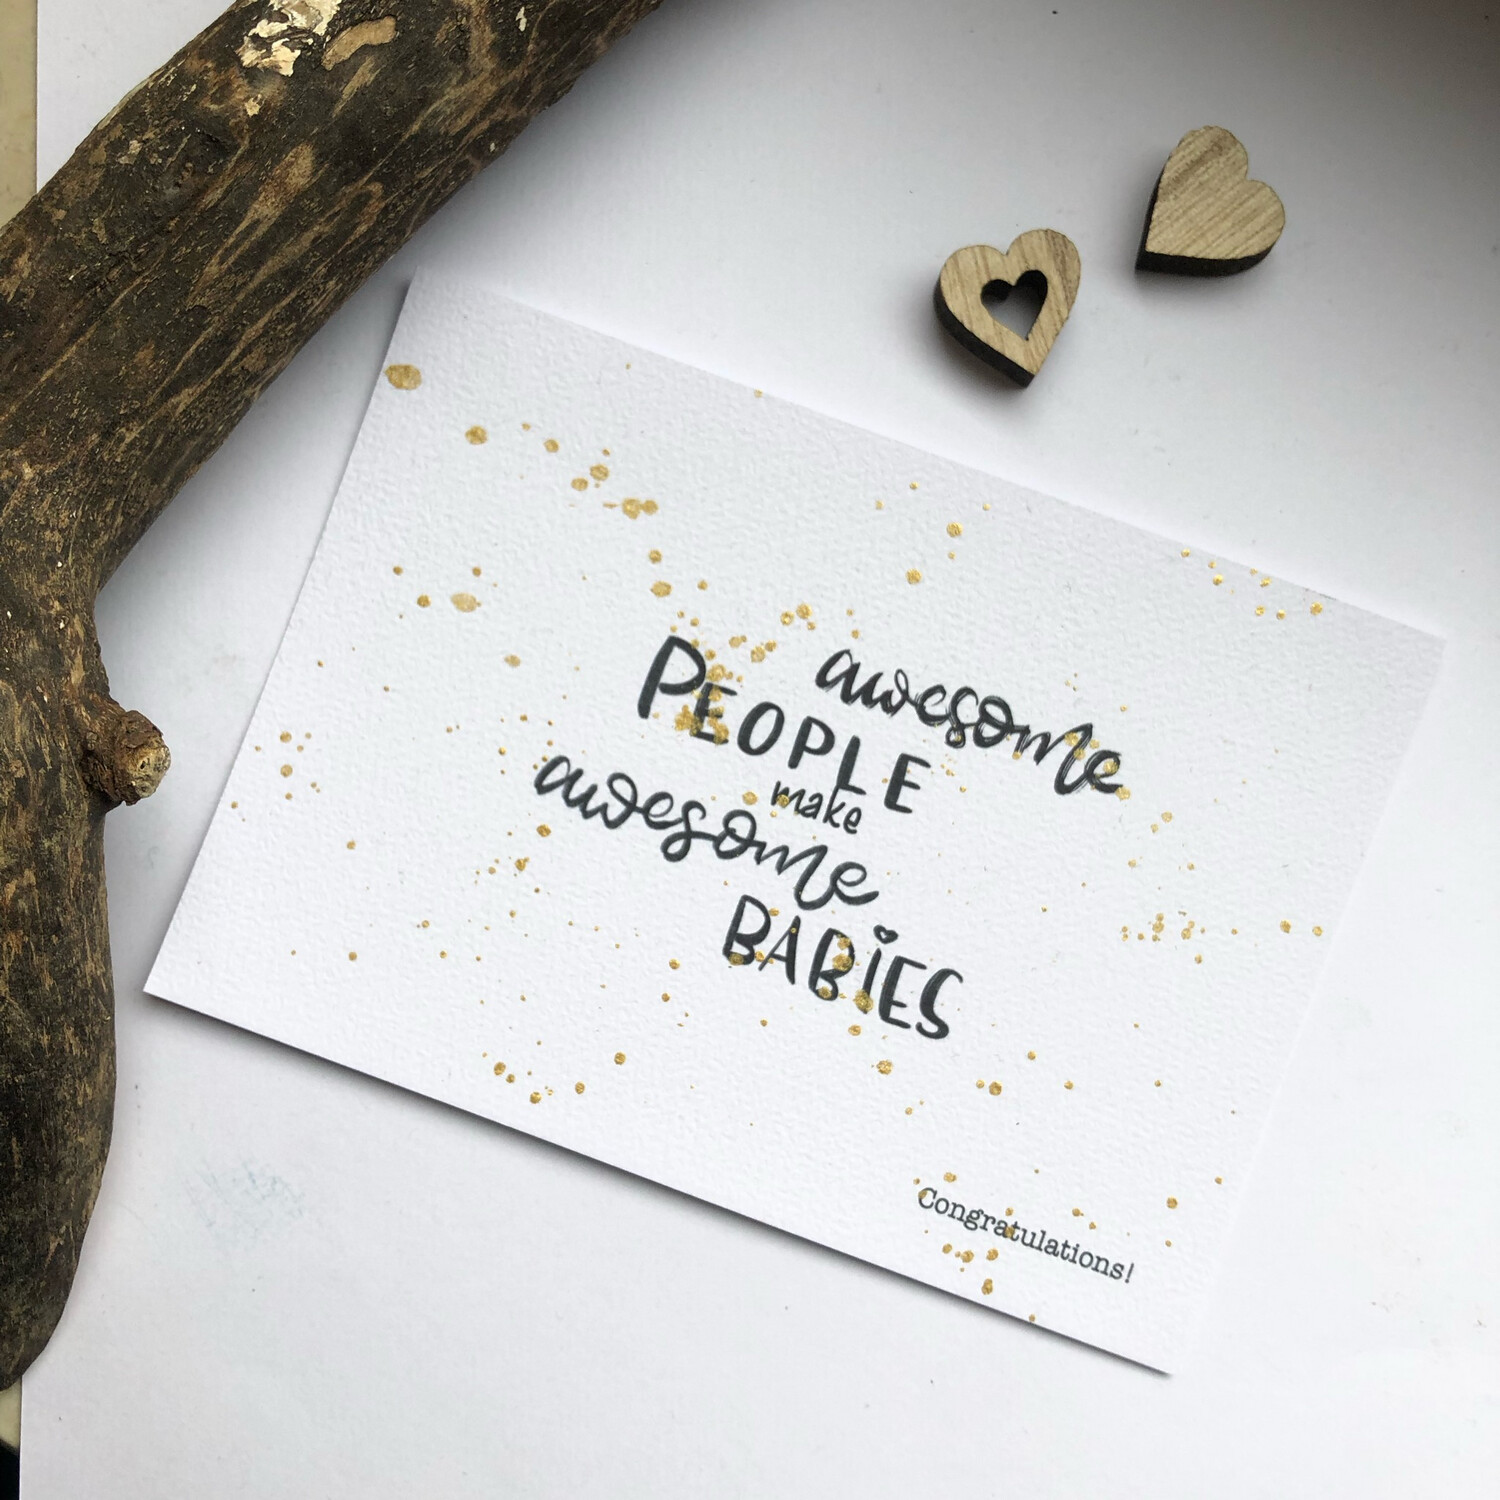 awesome
PEOPLE
make
awesome
BABiES
Congratulations!